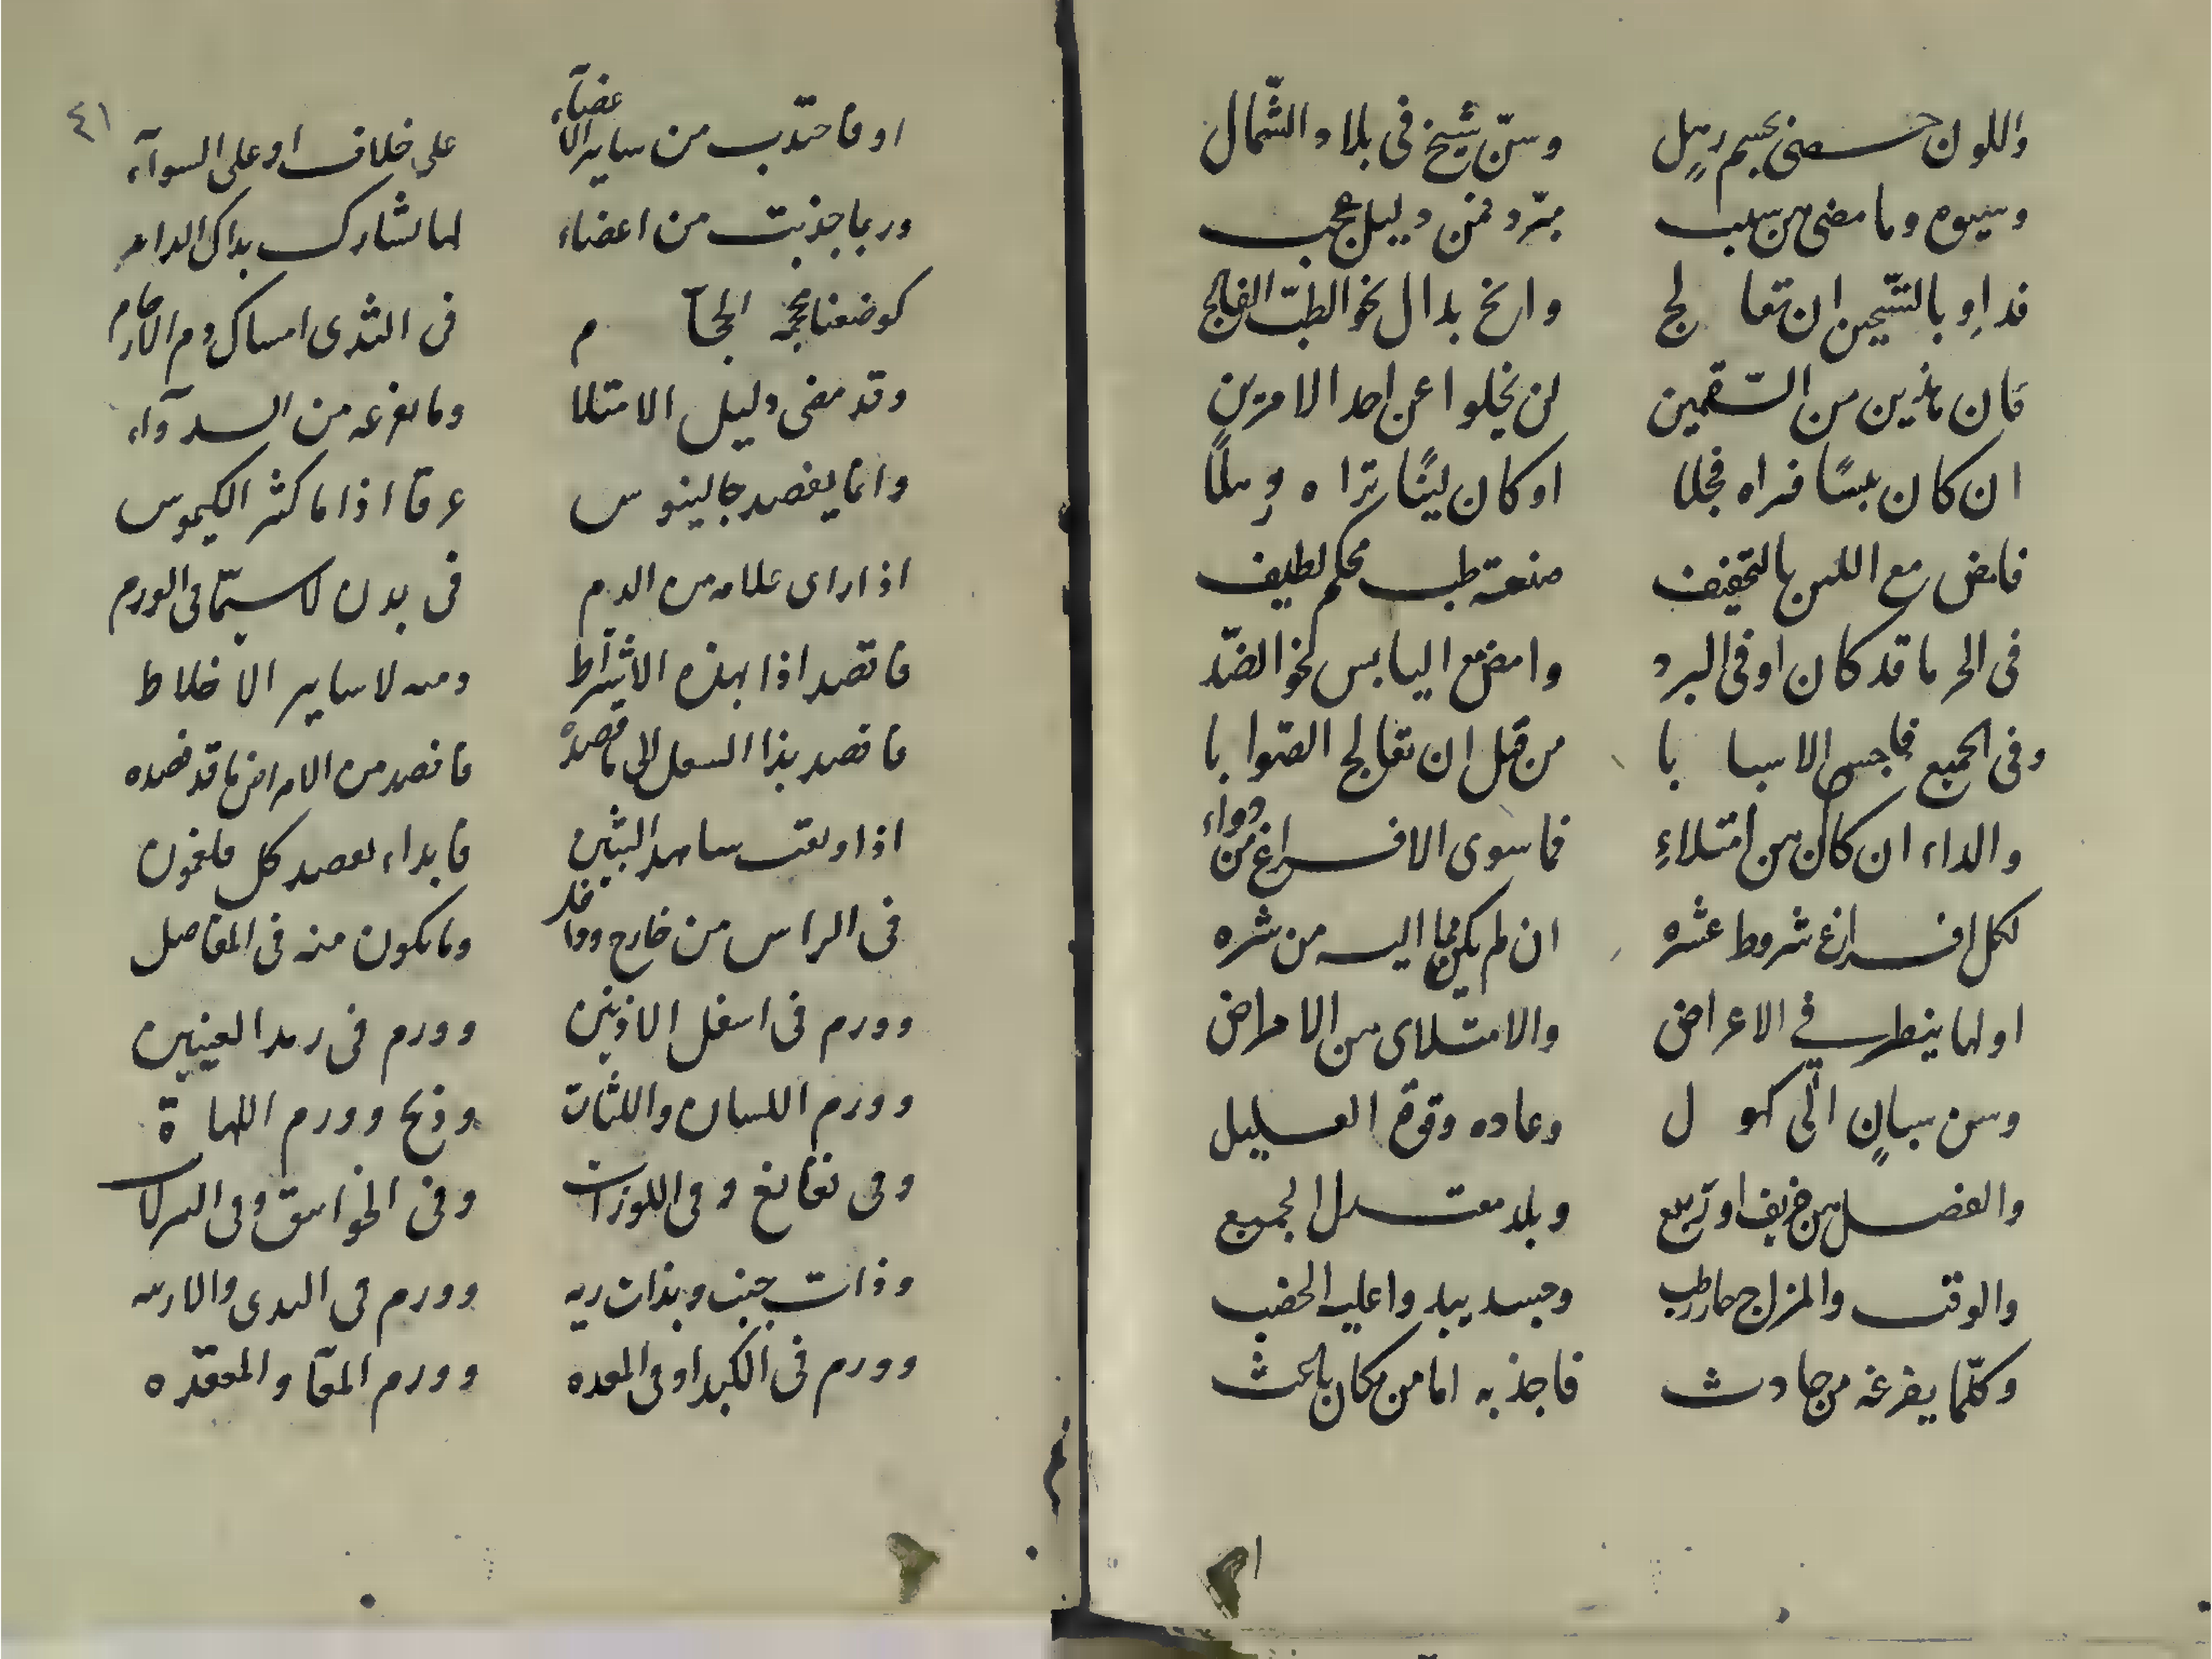 واللون حصنى بجسم رهل وسنّ شيخ فى بلاد الشّمال
وسيوم وما مضى من سبب مبرّد فمن دليل عجب
فداو بالتسخين ان تعالج وانح بدال نحو الطبّ الفالج
فان هذين من السّقمين لن يخلوا عن احد الامرين
ان كان يبسًا فتراه قحلا او كان لينًا تراه رهلًا
فامض مع اللين بالتجفيف صنعة طب محكم لطيف
فى الحر ما قد كان او فى البرد وامض مع اليابس نحو الضدّ
وفى الجميع فاحبس الاسبابا من قبل ان تعالج الصوابا
والداء ان كان من امتلاءِ فما سوى الافراغ من دواء
لكل افراغ شروط عشره ان لم يكن اليه من شره
اولها ينظر في الاعراض والامتلاى من الامراض
وسن شبانٍ الى كهول وعاده وقوة العليل
والفصل من خريف او ربيع وبلد معتدل الجميع
والوقت والمزاج حار رطب وجسد يبد واعليه الخصب
وكلّما يفرغه من حادث فاجذبه اما من مكان باعث
٤١
او فاجتذب من ساير الاعضآء على خلاف او على السوآء
وربما جذبت من اعضاء لها تشارك بذاك الداء
كوضعنا محجمة الحجآم فى الثدى امساك دم الارحام
وقد مضى دليل الامتلا وما يفرغه من الدوآء
وانما يفصد جالينوس عرقا اذا ما كثر الكيموس
اذا راى علامه من الدم فى بدن لاسيّما فى الورم
فاقصد اذا بهذه الاشراط ومنه لا ساير الاخلاط
فاقصد بذا السهل الى ما قصده فافصد من الامراض ما قد فصده
فابداء بفصد كل فلغمون
فى الراس من خارج وداخل وما يكون منه فى المفاصل
وورم فى اسفل الاذنين وورم فى رمد العينين
وورم اللسان واللثات وذبح وورم اللهاة
وفى نغانغ وفى اللوزات وفى الخوانيق وفى
وذات جنب وبذات ريه وورم فى الثدى والاربيه
وورم فى الكبد او فى المعده وورم المعآ والمعقده